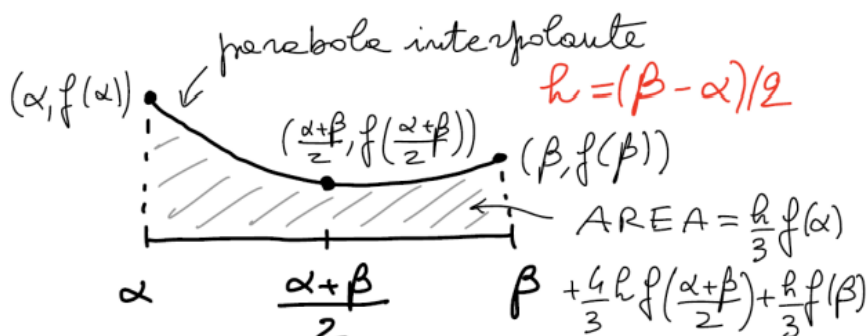 parabola interpolante
(α, f(α))
h = (β - α)/2
(α+β/2, f(α+β/2))
(β, f(β))
AREA = h/3 f(α)
+ 4/3 h f(α+β/2) + h/3 f(β)
α
α+β/2
β